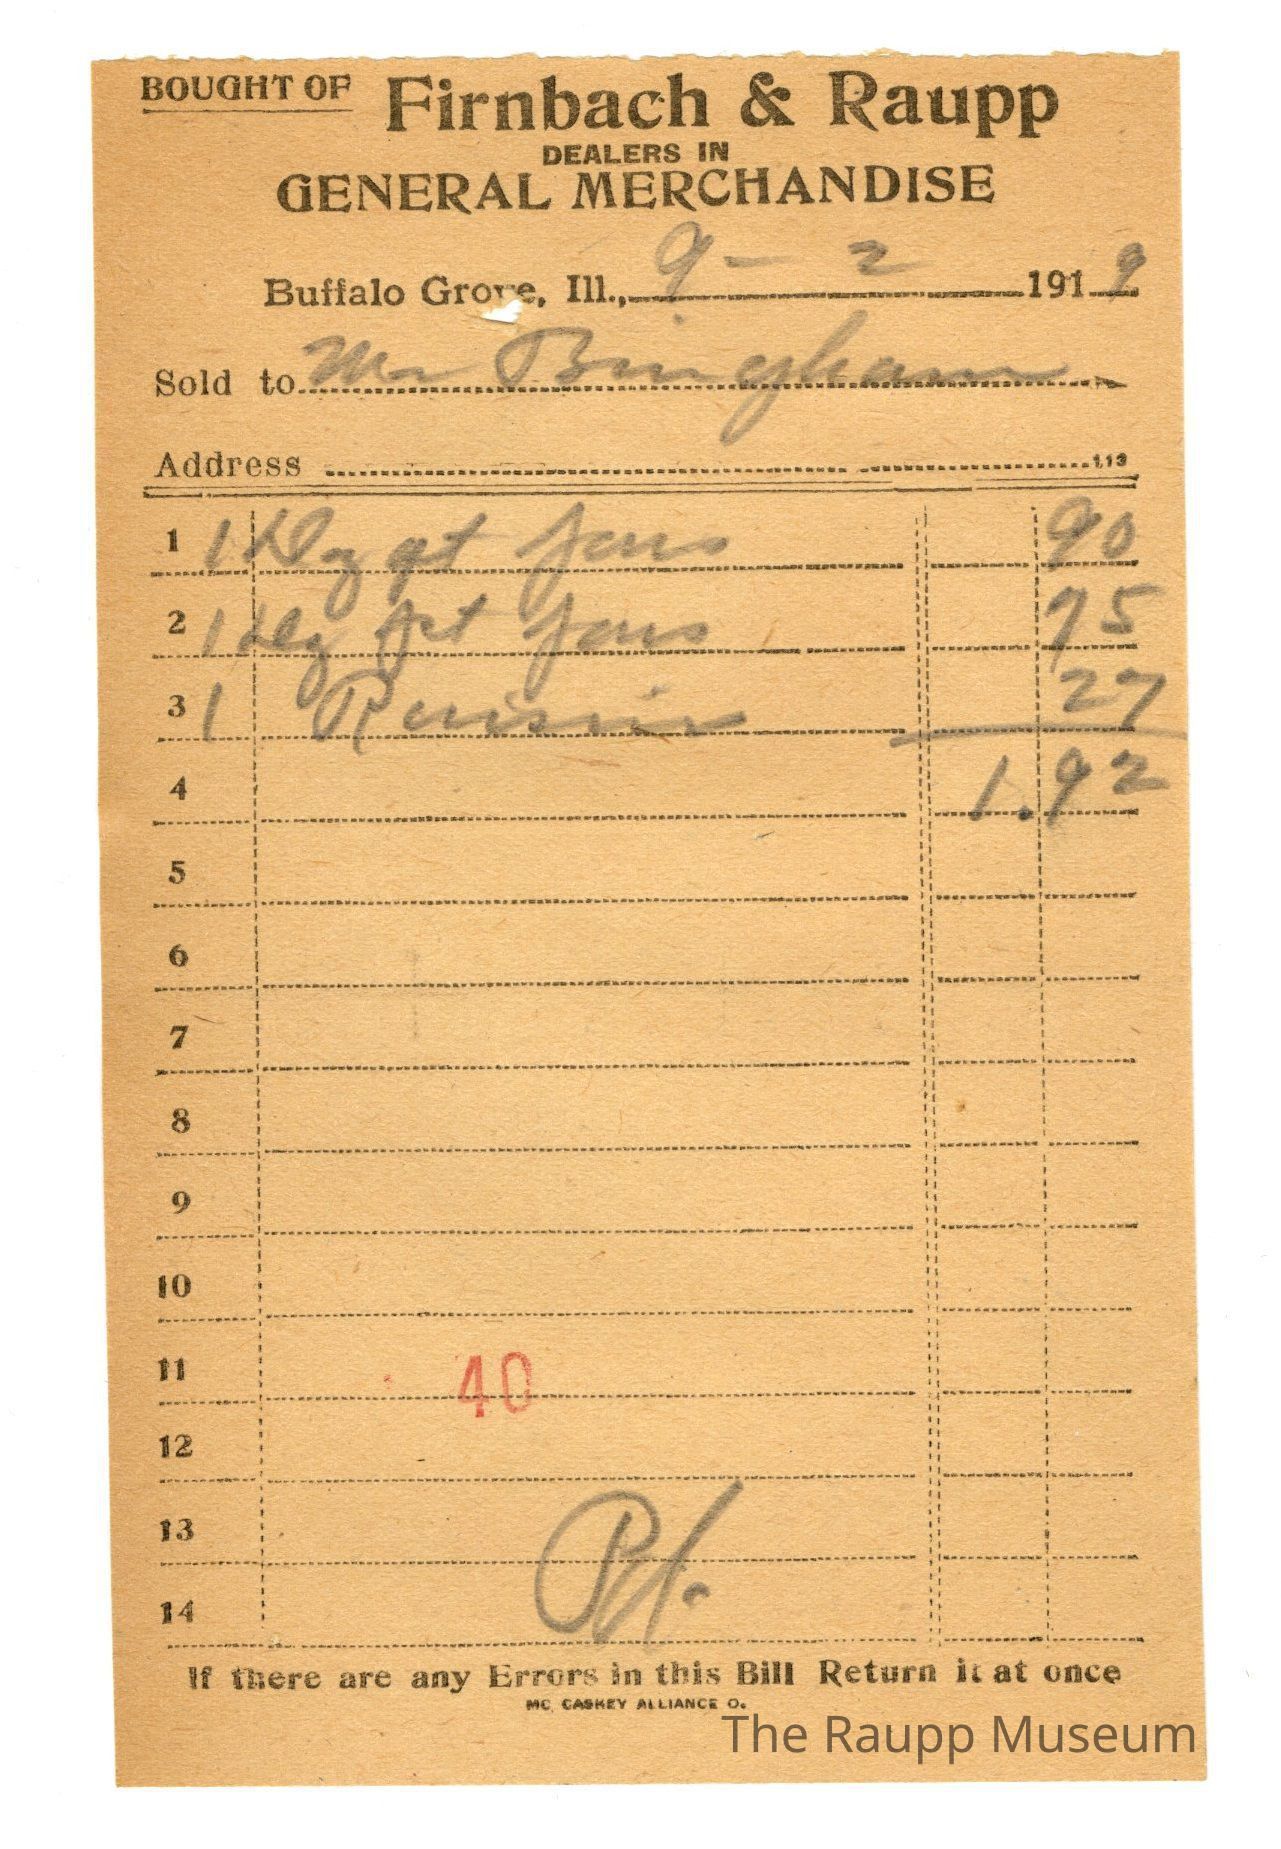 BOUGHT OF Firnbach & Raupp
DEALERS IN
GENERAL MERCHANDISE
Buffalo Grove, Ill., 9 - 2 1919
Sold to Mr Bingham
Address 113
1 1 Dz qt Jars 90
2 1 Dz pt Jars 75
3 1 Raisin 27
4 1.92
5
6
7
8
9
10
11 40
12
13
14
Pd.
If there are any Errors in this Bill Return it at once
MC CASKEY ALLIANCE O.
The Raupp Museum